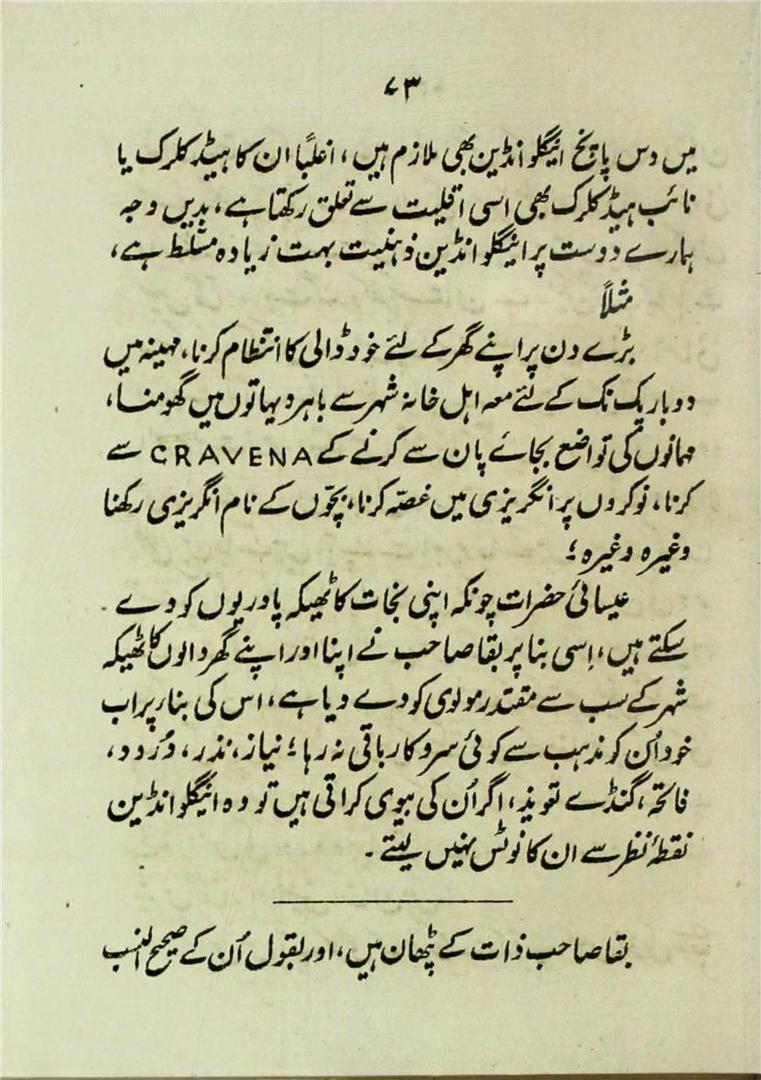 ۷۳
میں دس پانچ اینگلو انڈین بھی ملازم ہیں، اغلباً ان کا ہیڈ کلرک یا
نائب ہیڈ کلرک بھی اسی اقلیت سے تعلق رکھتا ہے، بدیں وجہ
ہمارے دوست پر اینگلو انڈین ذہنیت بہت زیادہ مسلط ہے،
مثلاً
بڑے دن پر اپنے گھر کے لئے خود ڈالی کا انتظام کرنا، مہینہ میں
دوبار پک نک کے لئے معہ اہل خانہ شہر سے باہر دیہاتوں میں گھومنا،
مہمانوں کی تواضع بجائے پان سے کرنے کے CRAVENA سے
کرنا، نوکروں پر انگریزی میں غصّہ کرنا، بچّوں کے نام انگریزی رکھنا
وغیرہ وغیرہ؛
عیسائی حضرات چونکہ اپنی نجات کا ٹھیکہ پادریوں کو دے
سکتے ہیں، اِسی بنا پر بقا صاحب نے اپنا اور اپنے گھر والوں کا ٹھیکہ
شہر کے سب سے مقتدر مولوی کو دے دیا ہے، اس کی بناء پر اب
خود اُن کو مذہب سے کوئی سروکار باقی نہ رہا؛ نیاز، نذر، دُرود،
فاتحہ، گنڈے تعویذ، اگر اُن کی بیوی کراتی ہیں تو وہ اینگلو انڈین
نقطۂ نظر سے ان کا نوٹس نہیں لیتے۔
بقا صاحب ذات کے پٹھان ہیں، اور بقول اُن کے صحیح النسب